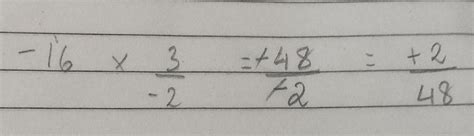 -16 × 3/-2 = -48/-2 = +2/48